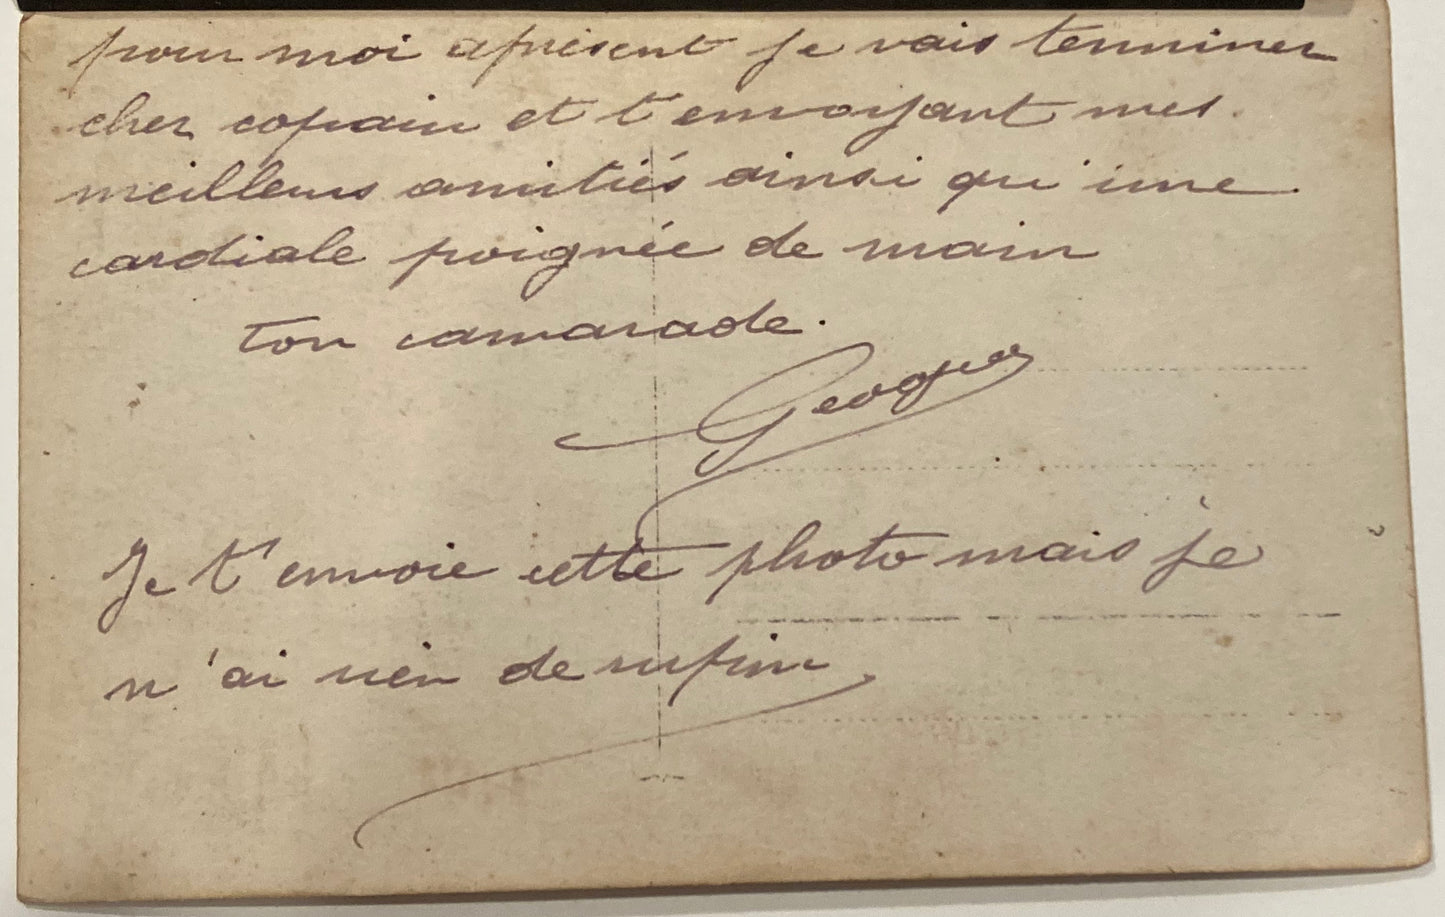 pour moi apresent je vais terminer
cher copain et t'envoyant mes
meilleurs amitiés ainsi qu'une
cardiale poignée de main
ton camarade.
Georges
Je t'envoie cette photo mais je
n'ai rien de